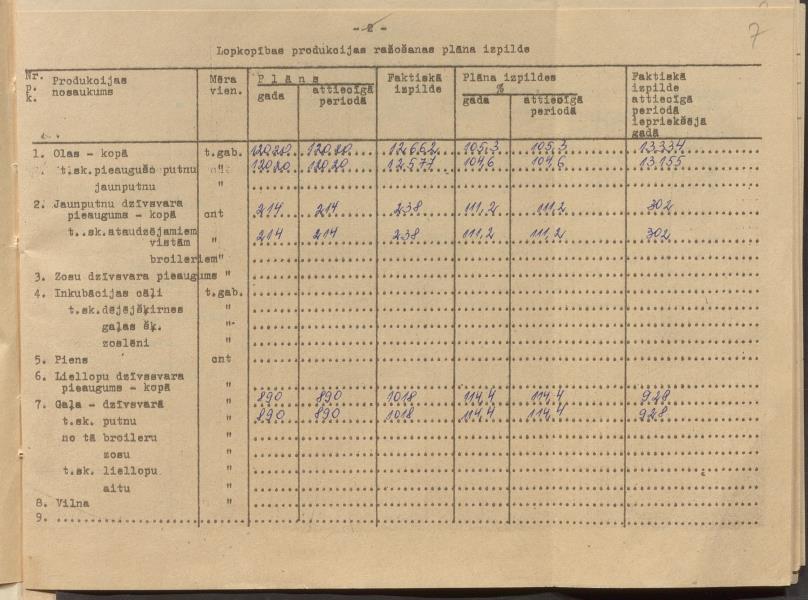 - 2 -
7
Lopkopības produkcijas ražošanas plāna izpilde
Nr. p. k.
Produkcijas nosaukums
Mēra vien.
Plāns
gada
attiecīgā periodā
Faktiskā izpilde
Plāna izpildes %
gada
attiecīgā periodā
Faktiskā izpilde attiecīgā periodā iepriekšējā gadā
1. Olas - kopā t.gab. 12020 12020 12662 105,3 105,3 13334
t.sk.pieaugušo putnu " 12020 12020 12577 104,6 104,6 13155
jaunputnu "
2. Jaunputnu dzīvsvara
pieaugums - kopā cnt 214 214 238 111,2 111,2 302
t..sk.ataudzējamiem
vistām " 214 214 238 111,2 111,2 302
broileriem "
3. Zosu dzīvsvara pieaugums "
4. Inkubācijas cāļi t.gab.
t.sk.dējējšķirnes "
gaļas šķ. "
zoslēni "
5. Piens cnt
6. Liellopu dzīvssvara
pieaugums - kopā "
7. Gaļa - dzīvsvarā " 890 890 1018 114,4 114,4 928
t.sk. putnu " 890 890 1018 114,4 114,4 928
no tā broileru "
zosu "
t.sk. liellopu "
aitu "
8. Vilna "
9.